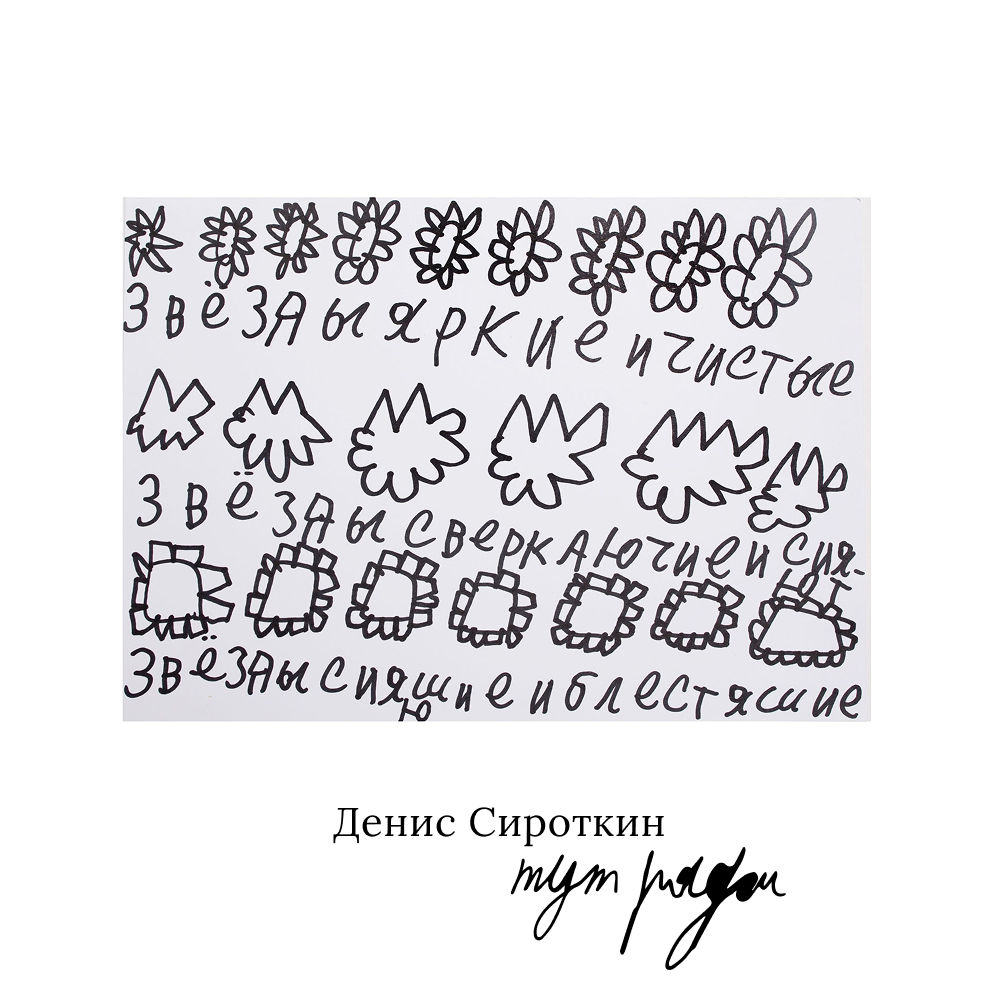 звёзды яркие и чистые
звёзды сверкающие и сия-
ют
звёзды сияющие и блестящие
Денис Сироткин
тут рядом